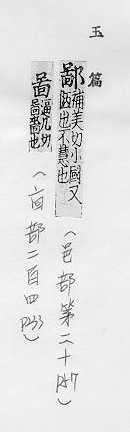 玉篇
鄙 補美切小國又
陋也不慧也
(邑部第二十 P47)
啚 逼几切
啚嗇也
(㐭部二百四 P233)